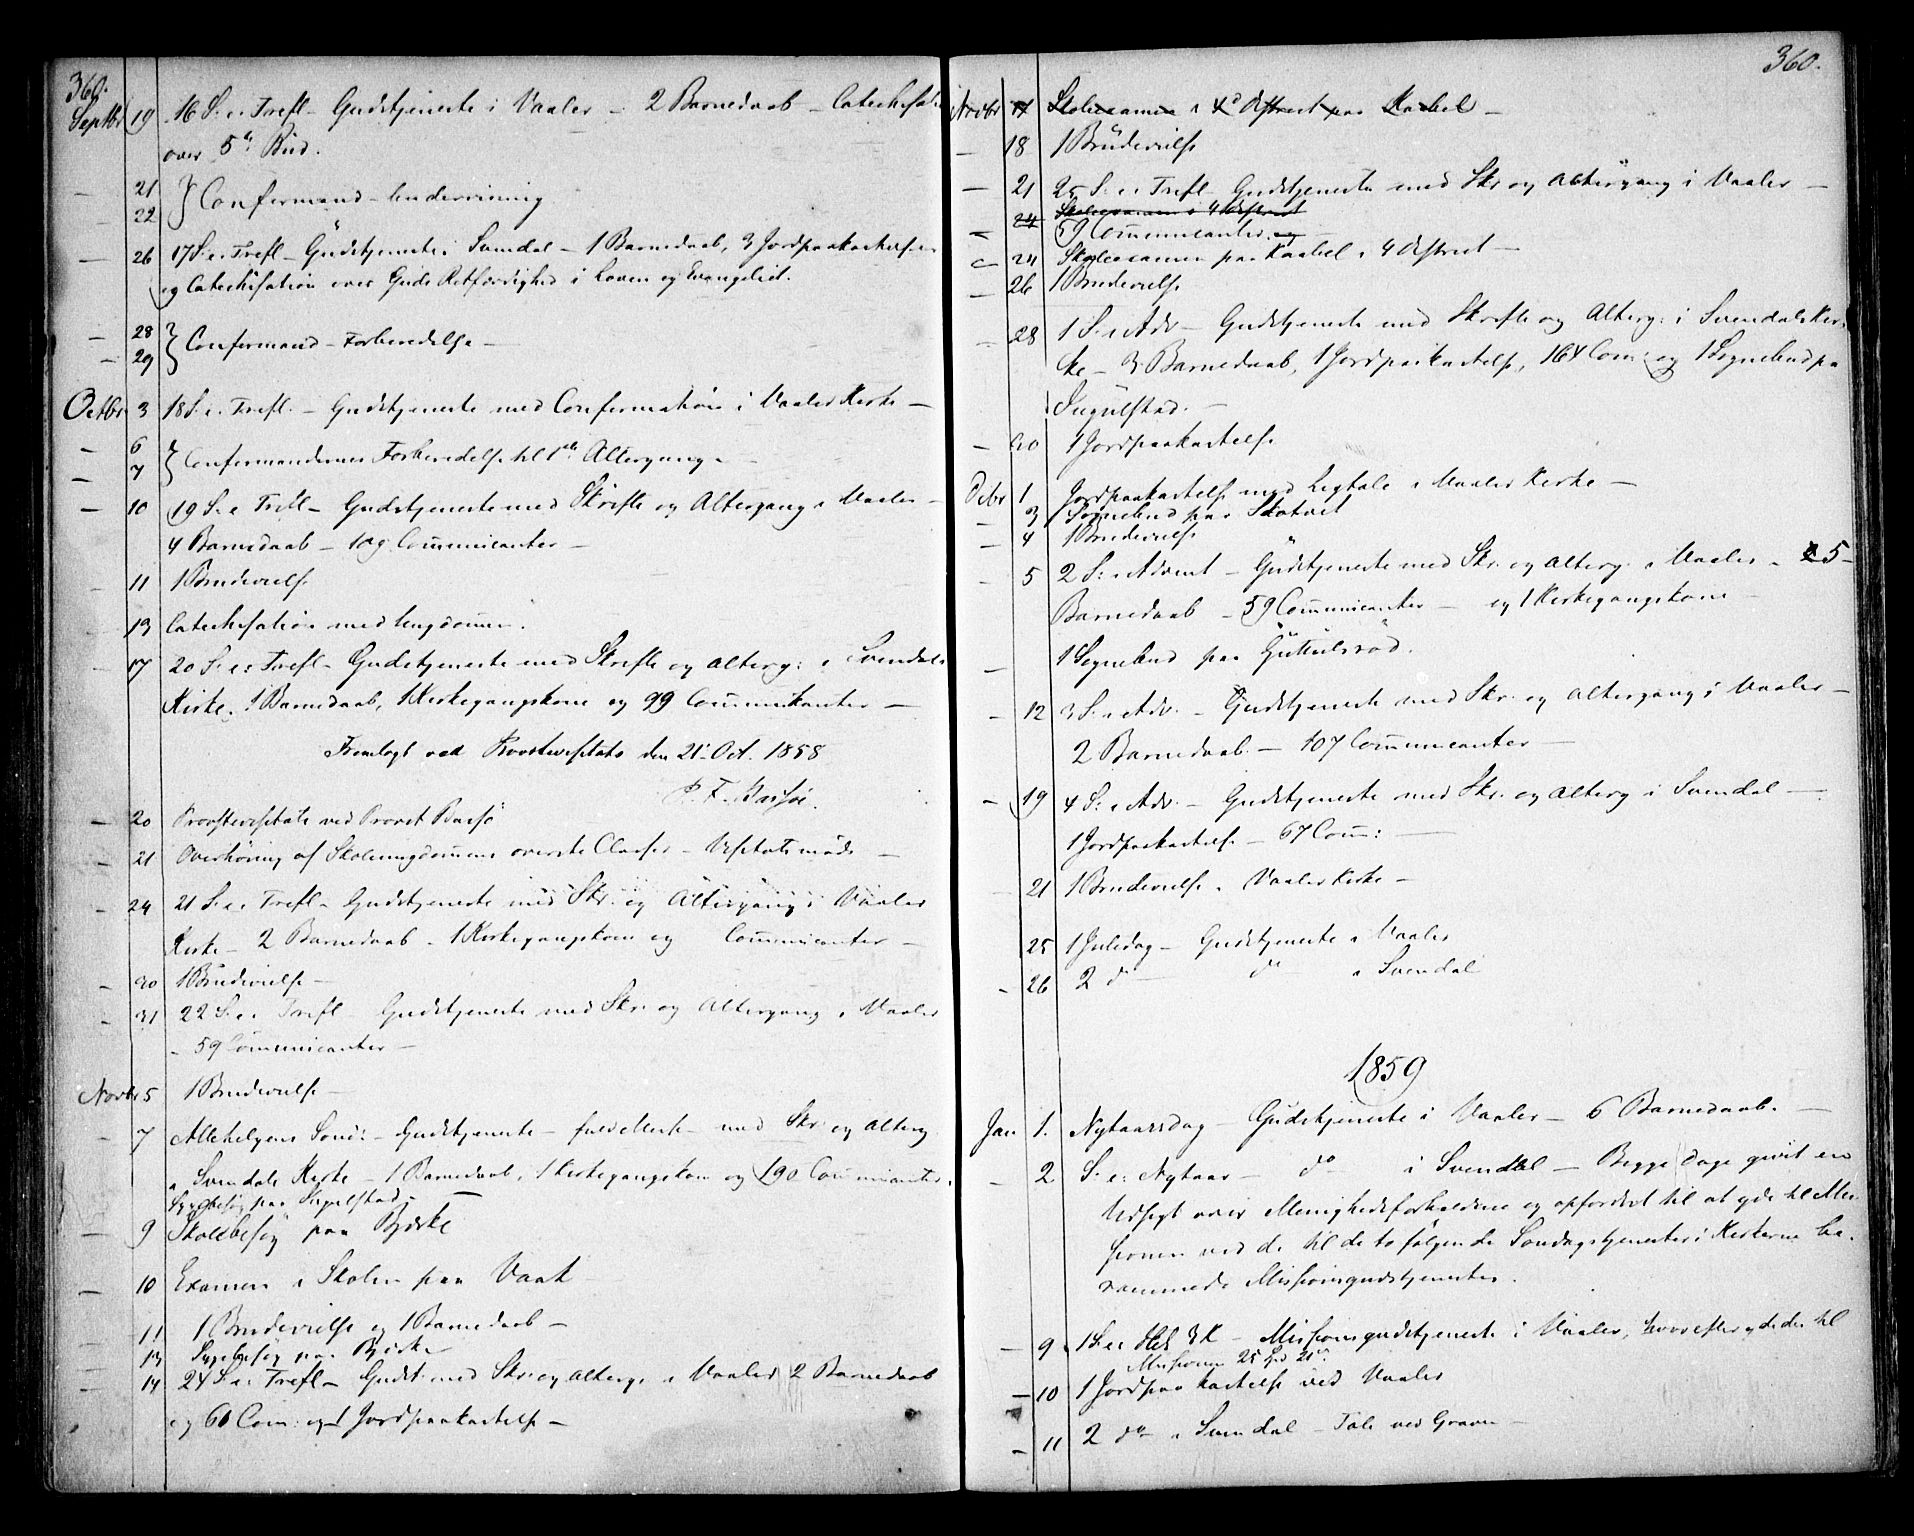 360.
Septbr 19 16 S. e. Trefl. Gudstjeneste i Vaaler – 2 Barnedaab – Catechisation
over 5te Bud.
– 21 } Confirmand-Underviisning
22
– 26 17 S. e. Trefl – Gudstjeneste i Svendal – 1 Barnedaab, 3 Jordpaakastelser
og Catechisation over Guds Retfærdighed i Loven og Evangeliet.
– 28 } Confirmand-Forberedelse –
– 29
Octbr 3 18 S. e. Trefl. – Gudstjeneste med Confirmation i Vaaler Kirke –
– 6 } Confirmandernes Forberedelse til 1ste Altergang –
7
– 10 19 S. e. Trefl – Gudstjeneste med Skrifte og Altergang i Vaaler –
4 Barnedaab – 109 Communicanter –
11 1 Brudevielse
13 Catechisation med Ungdommen.
17 20 S. e. Trefl – Gudstjeneste med Skrifte og Alterg: i Svendals
Kirke. 1 Barnedaab, 1 Kirkegangskone og 99 Communikanter –
Fremlagt ved Provstevisitats den 21. Oct. 1858
P. F. Bassøe.
– 20 Provstevisitats ved Provst Bassøe
– 21 Overhøring af Skoleungdommens øverste Classer – Visitatsmøde –
– 24 21 S. e. Trefl – Gudstjeneste med Skr. og Altergang i Vaaler
Kirke – 2 Barnedaab – 1 Kirkegangskone og Communicanter –
– 30 1 Brudevielse –
– 31 22 S. e. Trefl – Gudstjeneste med Skr. og Altergang i Vaaler
– 59 Communicanter –
Novbr 5 1 Brudevielse –
– 7 Allehelgens Sønd: – Gudstjeneste – med Skr. og Alterg
i Svendals Kirke – 1 Barnedaab, 1 Kirkegangskone og 190 Communicanter.
Sygebesøg paa
– 9 Skolebesøg paa Bjerke
– 10 Examen i Skolen paa Vaak
– 11 1 Brudevielse og 1 Barnedaab –
– 13 Sygebesøg paa Bjerke
– 14 24 S. e. Trefl – Gudst. med Skr. og Alterg. i Vaaler 2 Barnedaab
og 60 Com: og 1 Jordpaakastelse –
360.
Novbr 17 Skoleexamen i 4d District paa Kaabel –
– 18 1 Brudevielse
– 21 25 S. e. Trefl – Gudstjeneste med Skr. og Altergang i Vaaler –
24 Skoleexamen i 4 District
– 59 Communicanter
– 24 Skoleexamen paa Kaabel i 4 District –
– 26 1 Brudevielse
– 28 1 S. i Adv – Gudstjeneste med Skrifte og Alterg: i Svendals Kir-
ke – 3 Barnedaab, 1 Jordpaakastelse, 164 Com: og 1 Sognebud paa
– 30 1 Jordpaakastelse
Decbr 1 Jordpaakastelse med Ligtale i Vaaler Kirke –
– 3 1 Sognebud paa
– 4 1 Brudevielse
– 5 2 S: i Advent – Gudstjeneste med Skr. og Alterg. i Vaaler – 5
Barnedaab – 59 Communicanter – og 1 Kirkegangskone –
– 1 Sognebud paa Guttulsrød.
– 12 3 S. i Adv. – Gudstjeneste med Skr. og Altergang i Vaaler –
2 Barnedaab – 107 Communicanter –
– 19 4 S: i Adv. – Gudstjeneste med Skr. og Alterg i Svendal –
1 Jordpaakastelse – 67 Com: –
21 1 Brudevielse i Vaaler Kirke –
25 1 Juledag – Gudstjeneste i Vaaler
– 26 2 do do i Svendal
1859
Jan 1. Nytaarsdag – Gudstjeneste i Vaaler – 6 Barnedaab. –
– 2 S. e. Nytaar – do i Svendal – Begge Dage givet en
Udsigt over Menighedsforholdene og opfordret til at yde til Mis-
sionen ved de til de to følgende Søndagstjenester i Kirkerne be-
rammede Missionsgudstjenester.
– 9 1 S. e. Hel 3 K – Missionsgudstjeneste i Vaaler, hvorefter ydedes til
Missionen 25
– 10 1 Jordpaakastelse ved Vaaler
– 11 2 do i Svendal – Tale ved Graven –